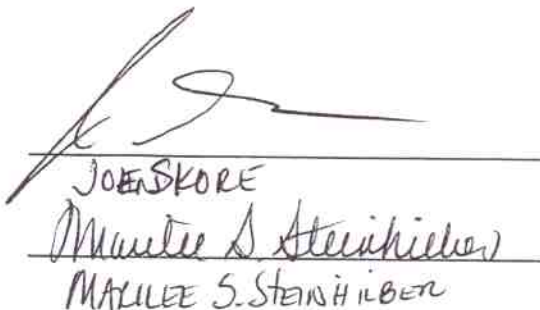 JOEN SKORE
Marilee S. Steinhilber
MARILEE S. STEINHILBER